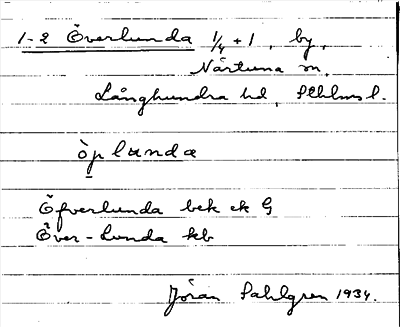 1-2 Överlunda 1/4 + 1, by,
Närtuna sn,
Långhundra hd, Sthlms l.
òp lunda
Öfverlunda bek ek G
Över-Lunda kb
Jöran Sahlgren 1934.